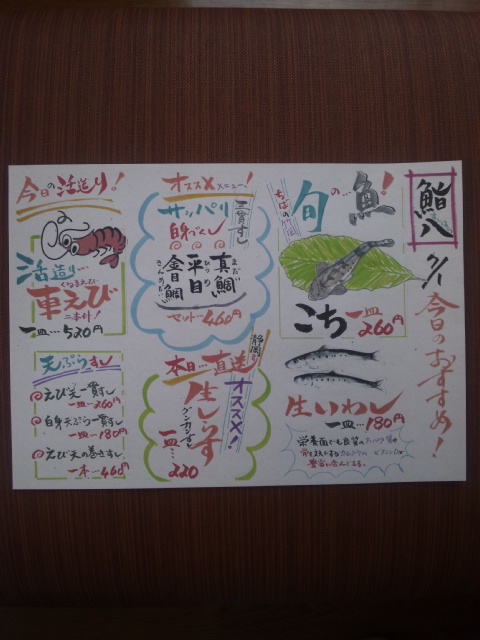 鮨八
今日のおすすめ!
旬の…魚!
こち一皿260円
生いわし
一皿…180円
栄養面でも良質の
豊富に含んでます。
オススメメニュー!
三貫すし
サッパリ
白身づくし
真鯛
まだい
平目
ひらめ
金目鯛
きんめだい
セット…460円
静岡より
本日…直送
オススメ!
生しらす
グンカンずし
一皿…
220
今日の活造り!
活造り…
くるまえび
車えび
二本付!
一皿…520円
天ぷらすし
えび天一貫すし
一皿…260円
白身天ぷら一貫すし
一皿…180円
えび天の巻きずし
一本…460円